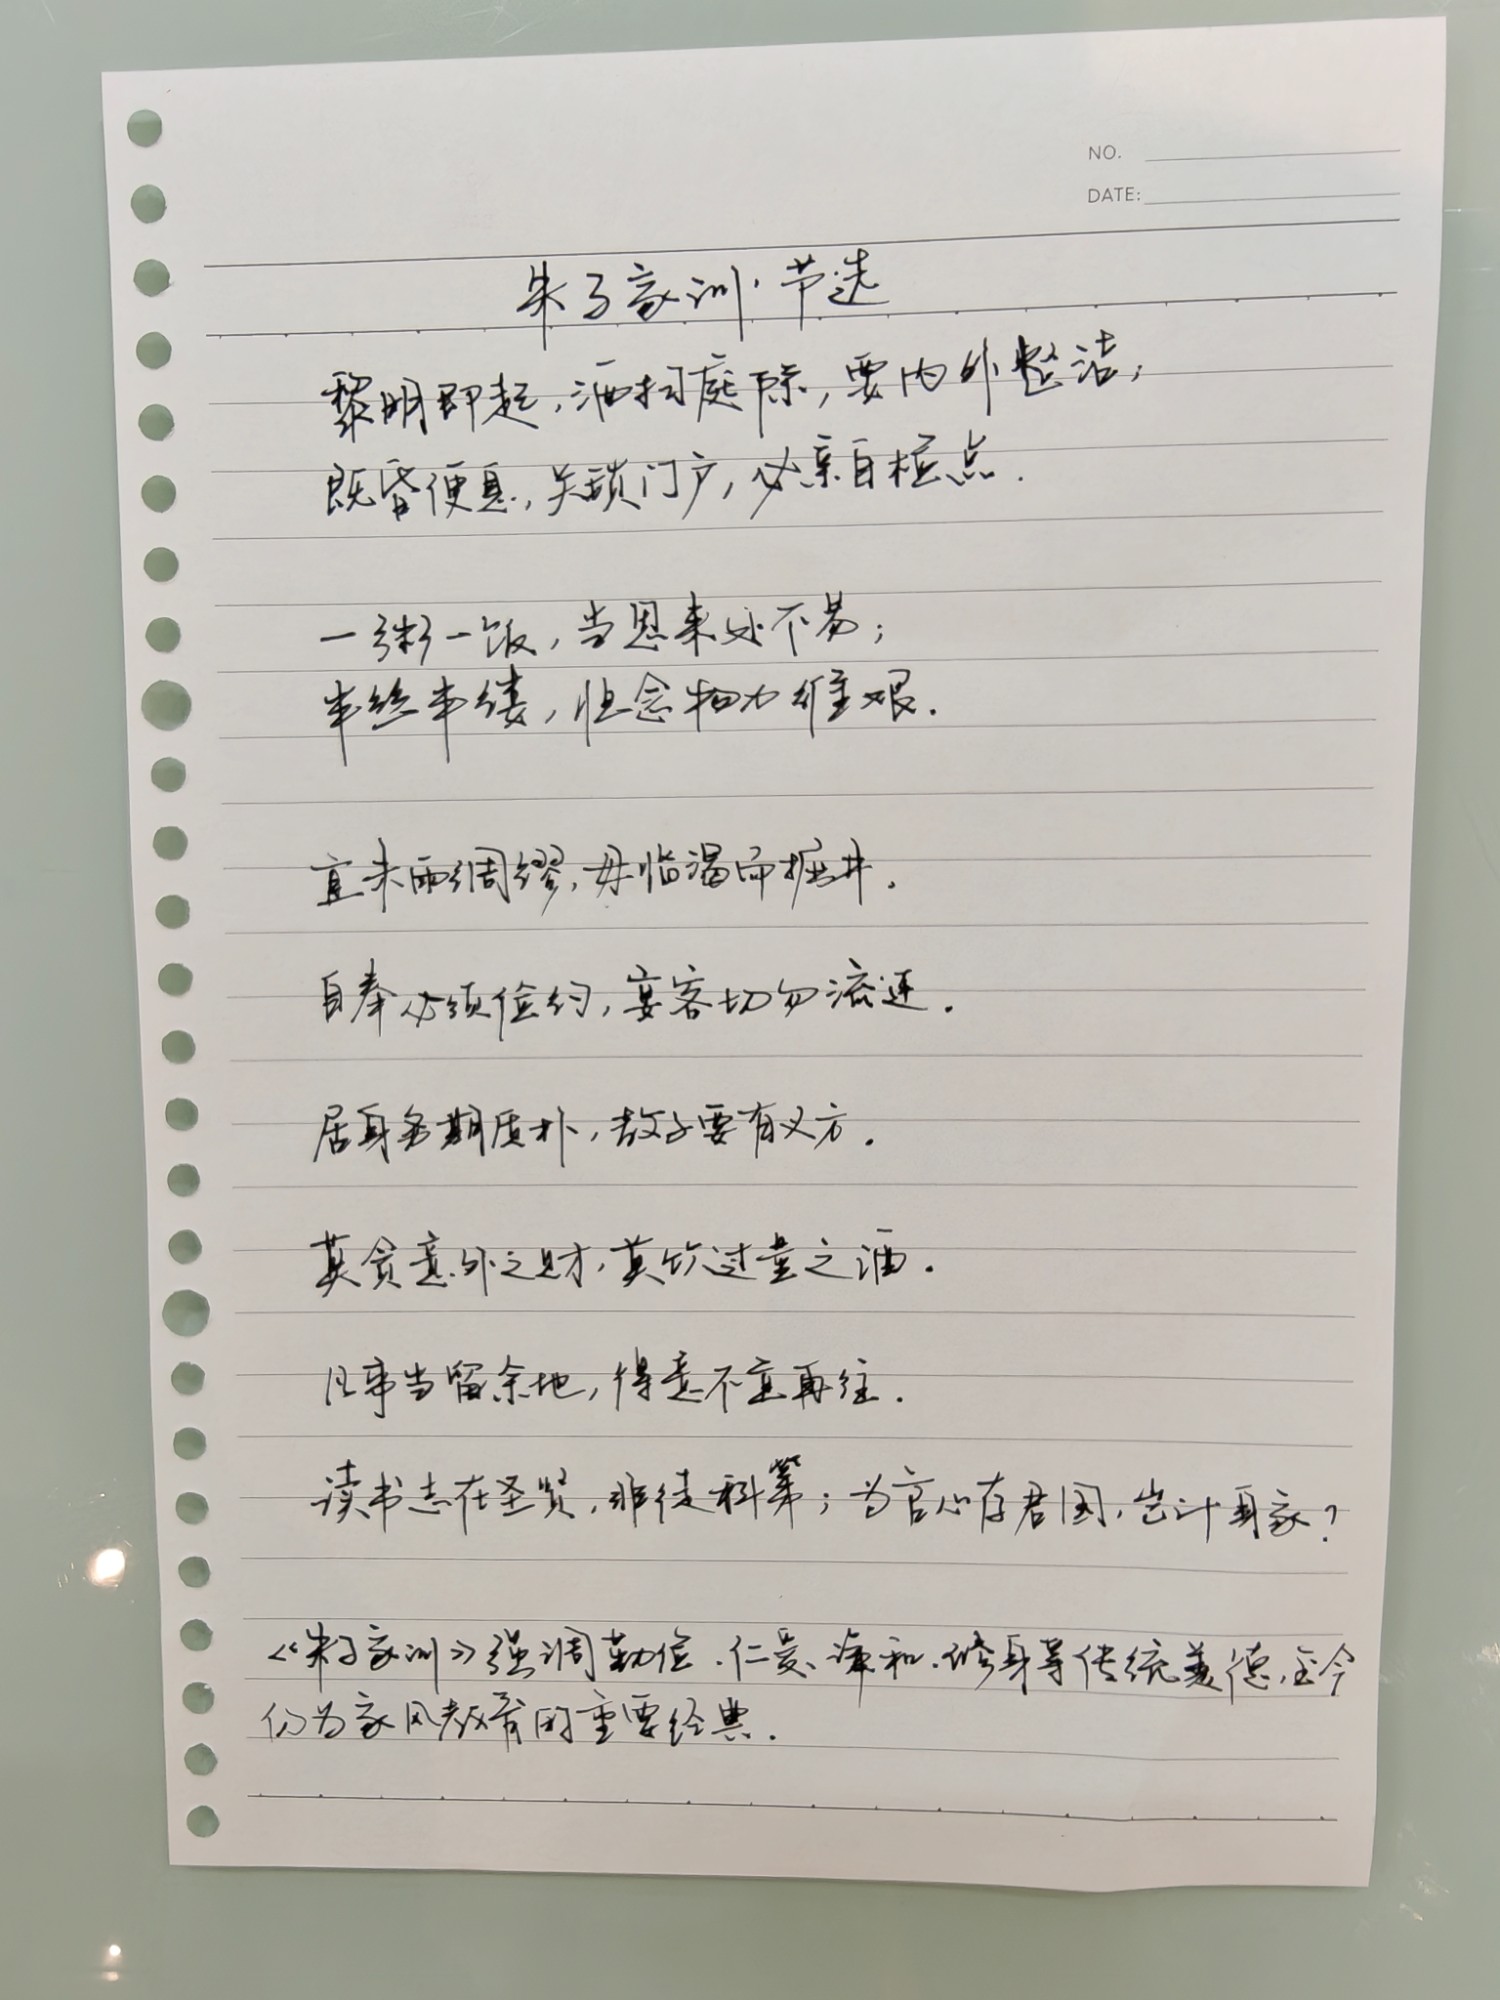 NO.
DATE:
朱子家训·节选
黎明即起,洒扫庭除,要内外整洁;
既昏便息,关锁门户,必亲自检点.
一粥一饭,当思来处不易;
半丝半缕,恒念物力维艰.
宜未雨绸缪,毋临渴而掘井.
自奉必须俭约,宴客切勿流连.
居身务期质朴,教子要有义方.
莫贪意外之财,莫饮过量之酒.
凡事当留余地,得意不宜再往.
读书志在圣贤,非徒科第;为官心存君国,岂计身家?
《朱子家训》强调勤俭、仁爱、谦和、修身等传统美德,至今
仍为家风教育的重要经典.